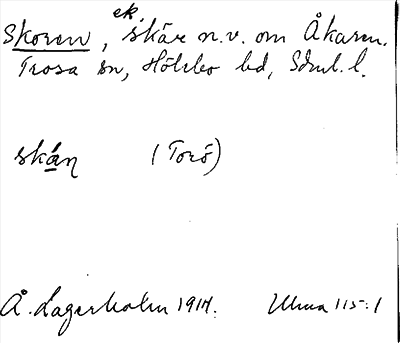 Skoren, ek. skär n.v. om Åkaren.
Trosa sn, Hölebo hd, Sdml. l.
skán (Torö)
Å. Lagerholm 1917. Uhma 115:1